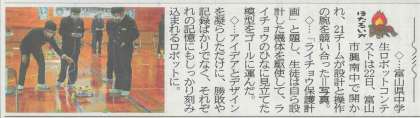 ほたるいか
◇…富山県中学
生ロボットコンテ
ストは22日、富山
市興南中で開か
れ、21チームが設計と操作
の腕を競い合った＝写真。
◇…「ライチョウ保護計
画」と題し、生徒は自ら設
計した機体を駆使して、ラ
イチョウのひなに見立てた
模型をゴールに運んだ。
◇…アイデアとデザイン
を凝らしただけに、勝敗や
記録ばかりでなく、それぞ
れの記憶にもしっかり刻み
込まれるロボットに。